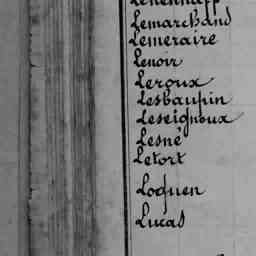 Lemarchand
Lemeraire
Lenoir
Leroux
Lesbaupin
Leseigneux
Lesné
Letort
Loquen
Lucas